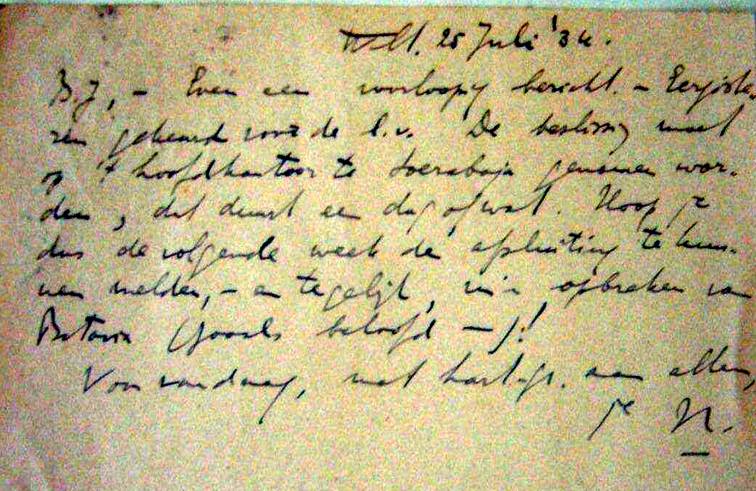 25 Juli '34.
B.J, – Even een voorloopig bericht. – Eergiste-
ren gekeurd voor de l.v. De beslissing moet
op 't hoofdkantoor te Soerabaja genomen wor-
den, dit duurt een dag of wat. Hoop je
dus de volgende week de afsluiting te kun-
nen melden, – en tegelijk, m'n opbreken van
Batavia (zooals beloofd – j!
Voor vandaag, met hartel. gr. aan allen,
je N.